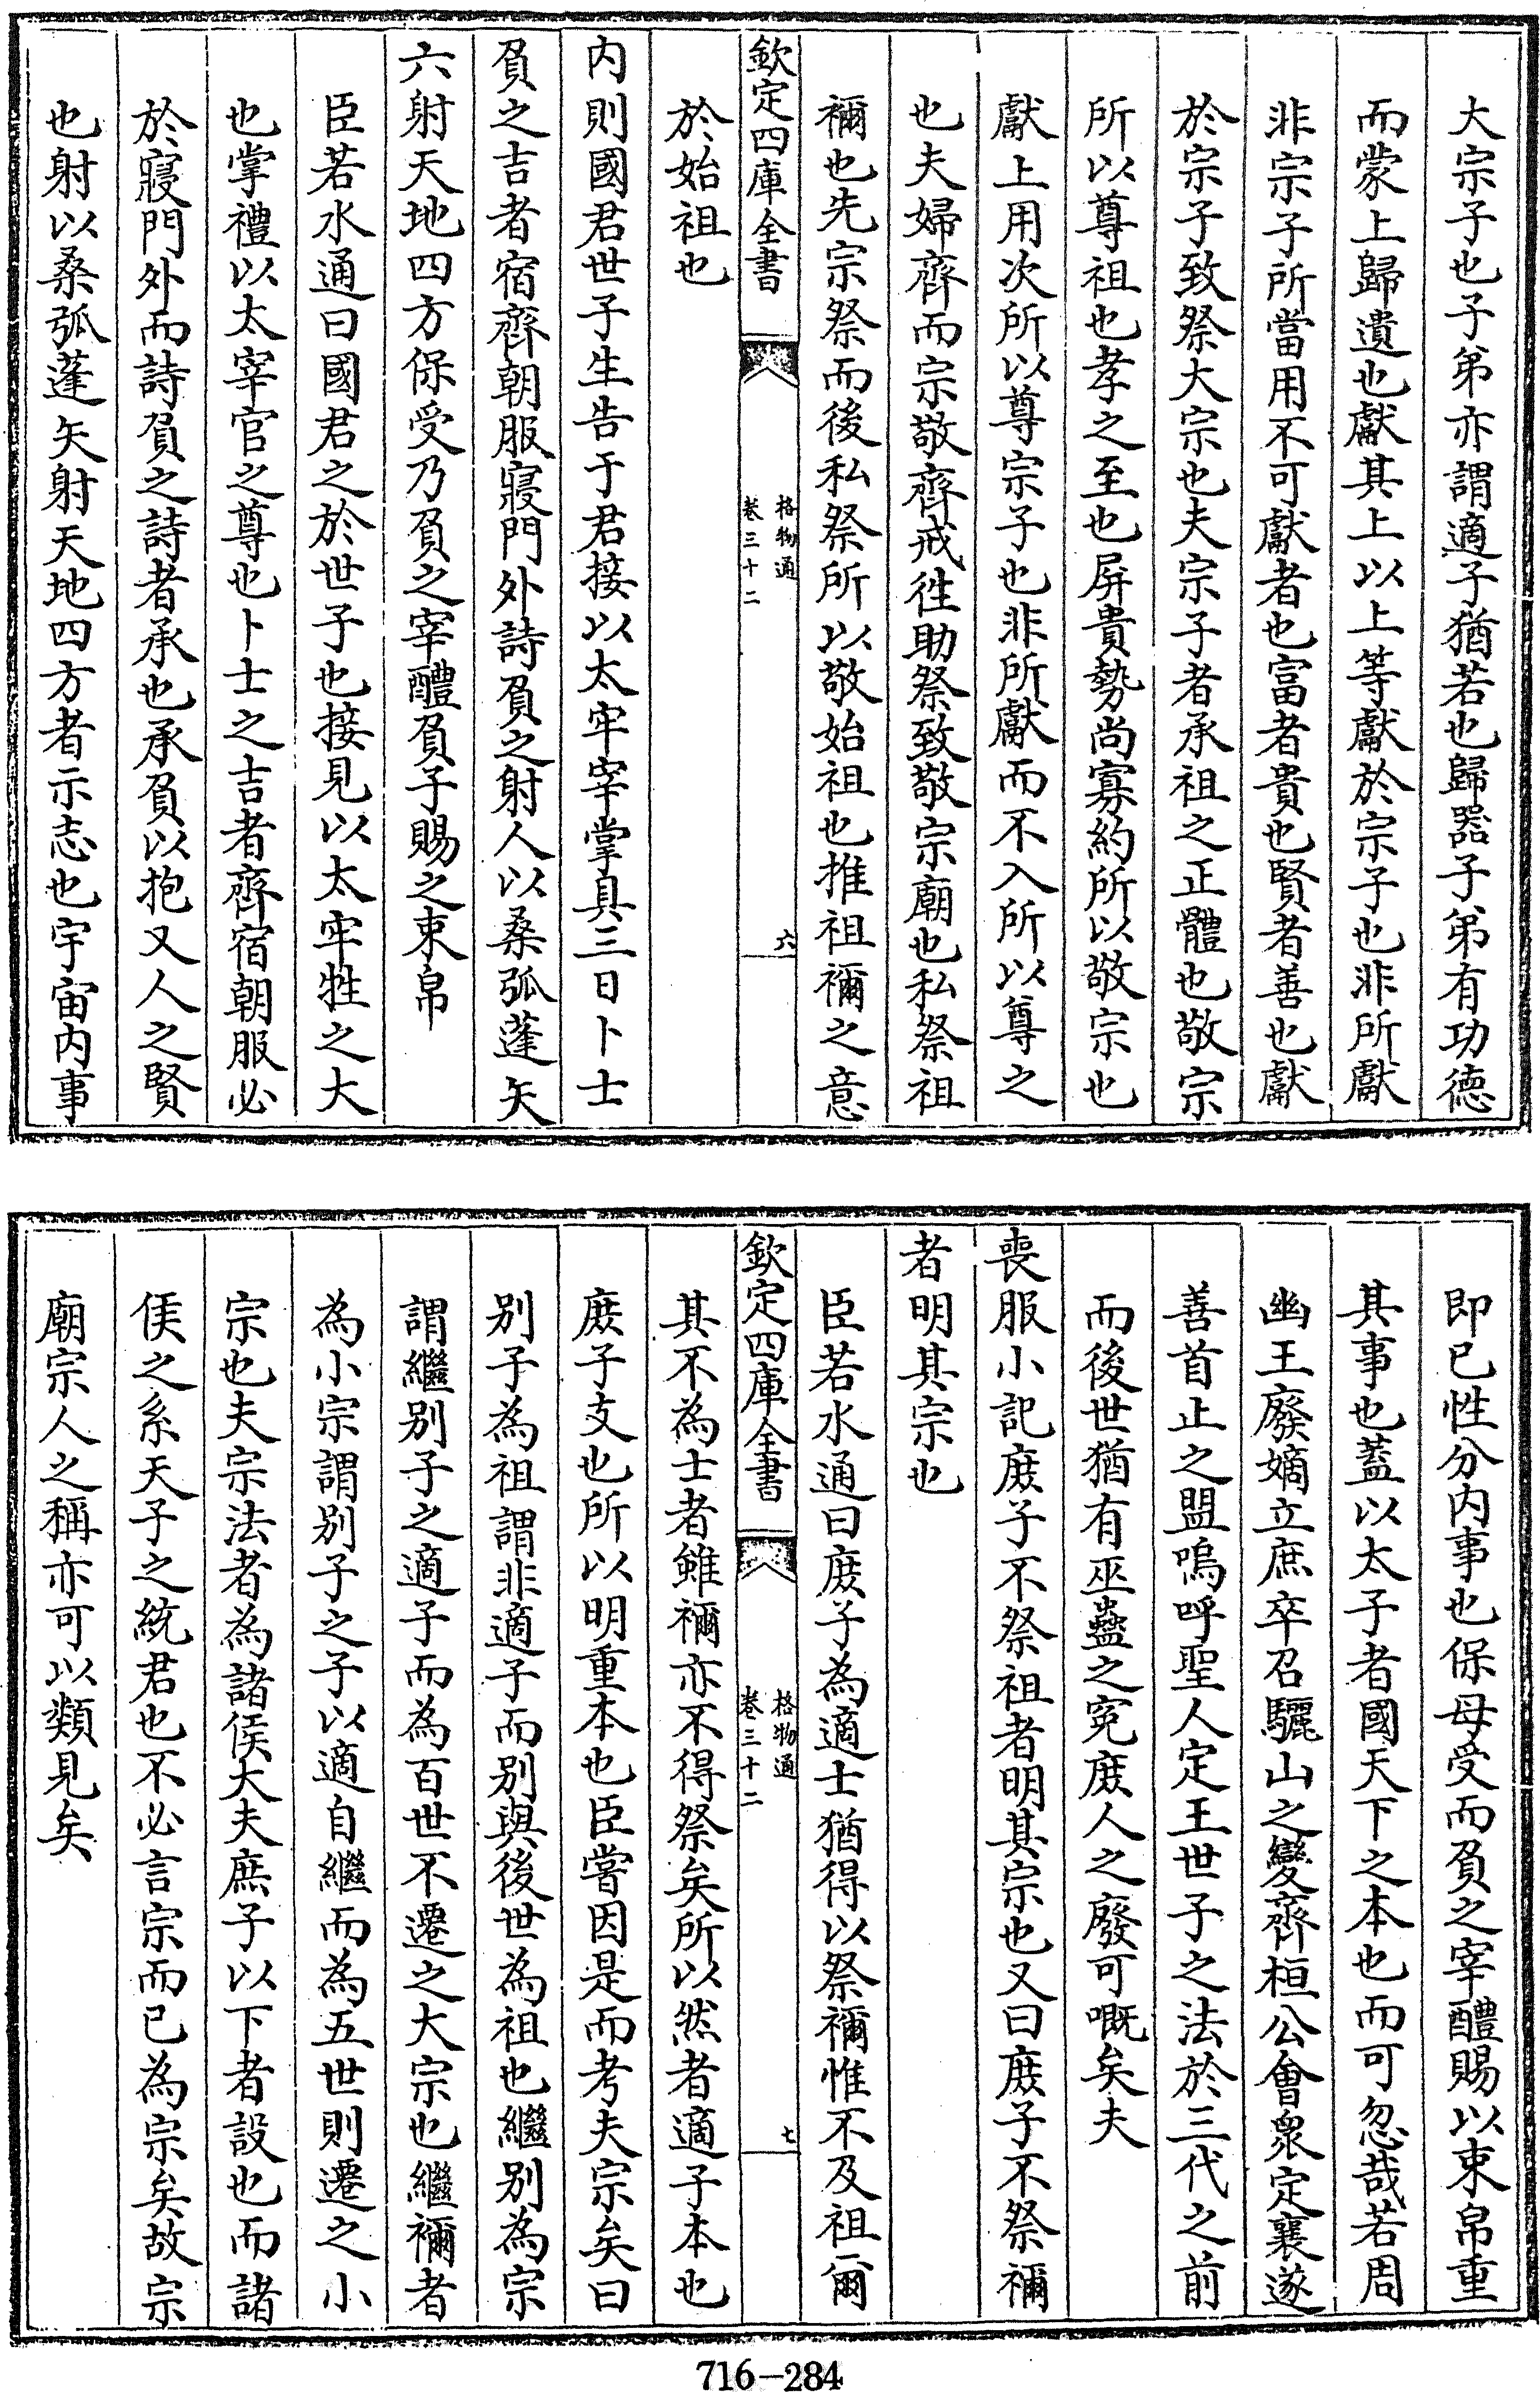 大宗子也子弟亦謂適子猶若也歸器子弟有功德
而蒙上歸遺也獻其上以上等獻於宗子也非所獻
非宗子所當用不可獻者也富者貴也賢者善也獻
於宗子致祭大宗也夫宗子者承祖之正體也敬宗
所以尊祖也孝之至也屏貴勢尚寡約所以敬宗也
獻上用次所以尊宗子也非所獻而不入所以尊之
也夫婦齊而宗敬齊戒徃助祭致敬宗廟也私祭祖
禰也先宗祭而後私祭所以敬始祖也推祖禰之意
欽定四庫全書
格物通
卷三十二
六
於始祖也
内則國君世子生告于君接以太牢宰掌具三日卜士
負之吉者宿齊朝服寢門外詩負之射人以桑弧蓬矢
六射天地四方保受乃負之宰醴負子賜之束帛
臣若水通曰國君之於世子也接見以太牢牲之大
也掌禮以太宰官之尊也卜士之吉者齊宿朝服必
於寢門外而詩負之詩者承也承負以抱又人之賢
也射以桑弧蓬矢射天地四方者示志也宇宙内事
即已性分内事也保母受而負之宰醴賜以束帛重
其事也蓋以太子者國天下之本也而可忽哉若周
幽王廢嫡立庶卒召驪山之變齊桓公會衆定襄遂
善首止之盟嗚呼聖人定王世子之法於三代之前
而後世猶有巫蠱之寃庶人之廢可嘅矣夫
喪服小記庶子不祭祖者明其宗也又曰庶子不祭禰
者明其宗也
臣若水通曰庶子為適士猶得以祭禰惟不及祖爾
欽定四庫全書
格物通
卷三十二
七
其不為士者雖禰亦不得祭矣所以然者適子本也
庶子支也所以明重本也臣嘗因是而考夫宗矣曰
别子為祖謂非適子而别與後世為祖也繼别為宗
謂繼别子之適子而為百世不遷之大宗也繼禰者
為小宗謂别子之子以適自繼而為五世則遷之小
宗也夫宗法者為諸侯大夫庶子以下者設也而諸
侯之系天子之統君也不必言宗而已為宗矣故宗
廟宗人之稱亦可以類見矣
716-284